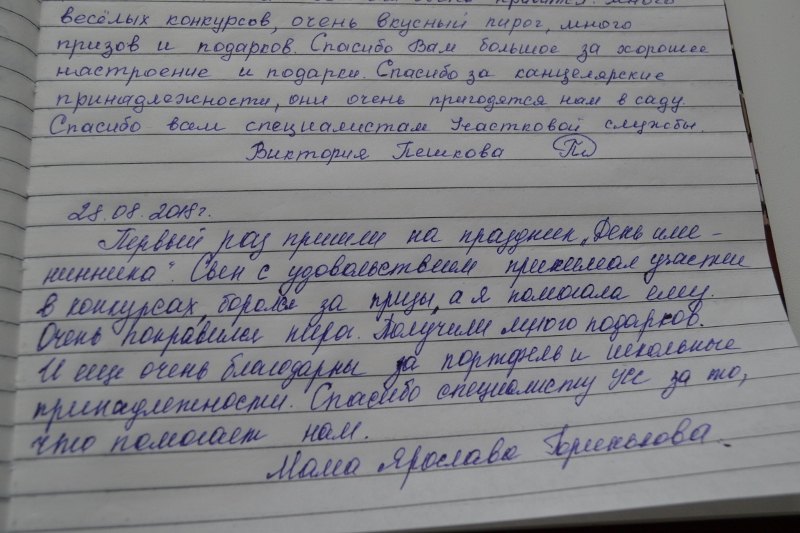 очень нравится. Много
весёлых конкурсов, очень вкусный пирог, много
призов и подарков. Спасибо Вам большое за хорошее
настроение и подарки. Спасибо за канцелярские
принадлежности, они очень пригодятся нам в саду.
Спасибо всем специалистам Участковой службы.
Виктория Пешкова
28.08.2018г.
Первый раз пришли на праздник „День име-
нинника". Сын с удовольствием принимал участие
в конкурсах, боролся за призы, а я помогала ему.
Очень понравился пирог. Получили много подарков.
И еще очень благодарны за портфель и школьные
принадлежности. Спасибо специалисту УСС за то,
что помогает нам.
Мама Ярослава